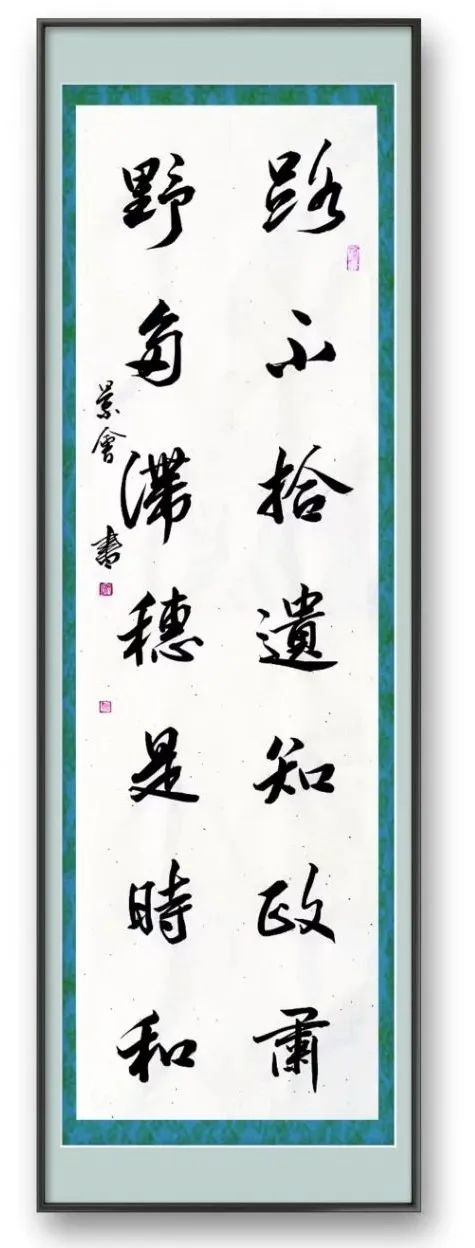 路不拾遺知政肅
野多滯穗是時和
景會書